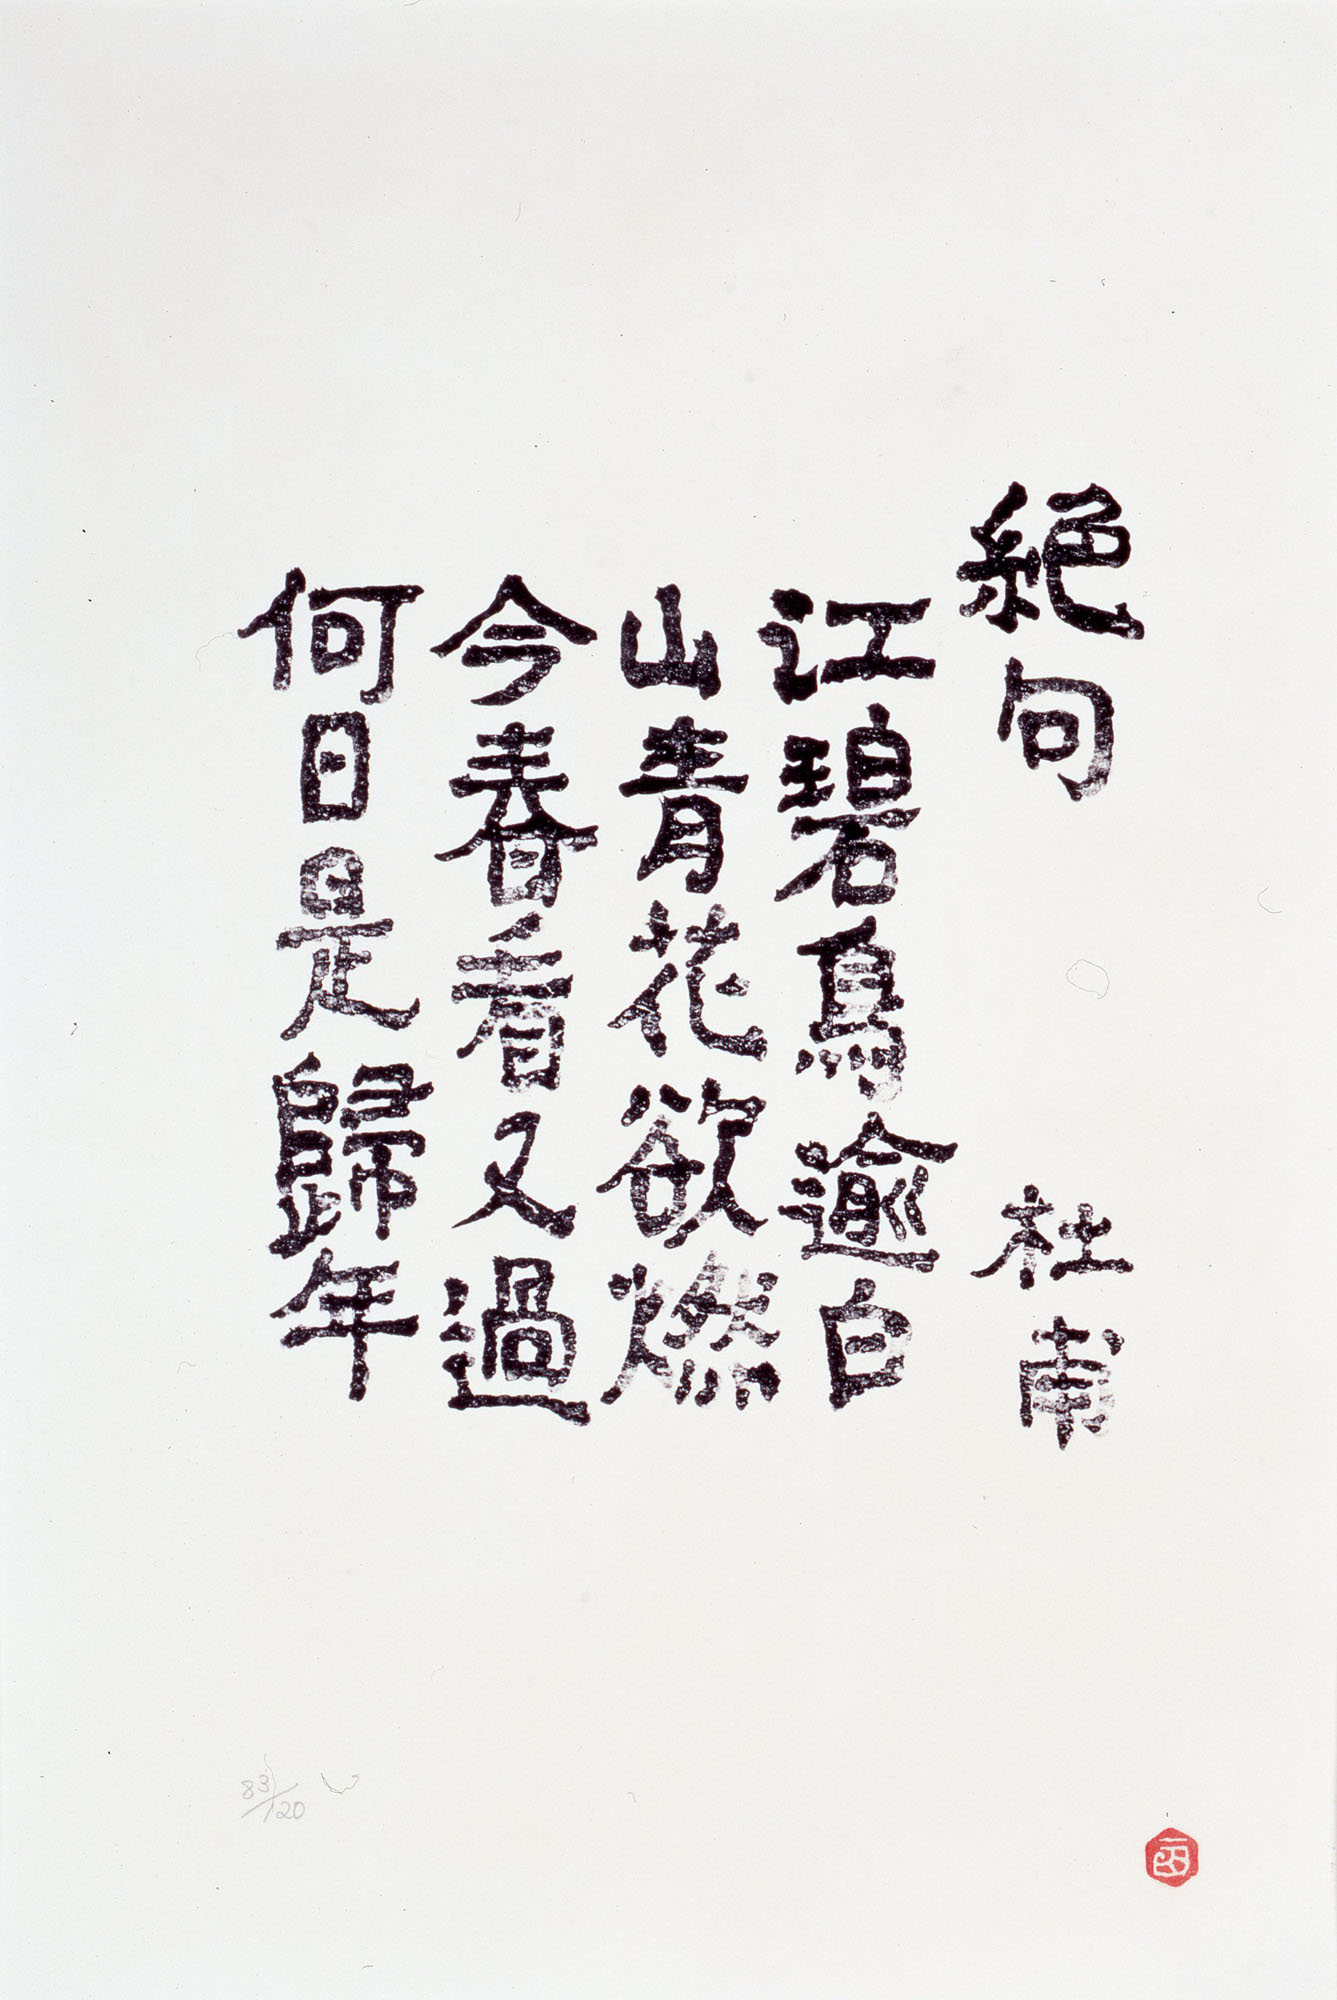 絶句 杜甫
江碧鳥逾白
山青花欲燃
今春看又過
何日是歸年
83/120